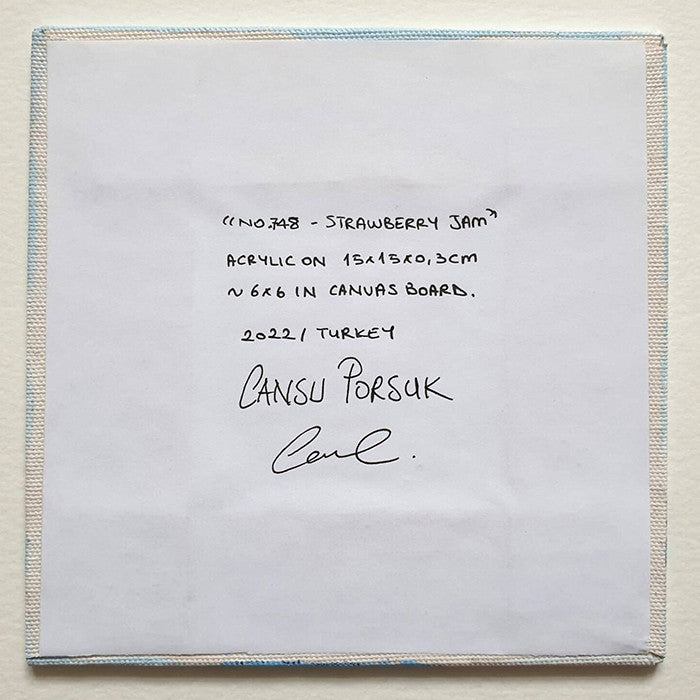 "NO.748 - STRAWBERRY JAM"
ACRYLIC ON 15x15x0,3CM
~ 6x6 IN CANVAS BOARD.
2022 / TURKEY
CANSU PORSUK